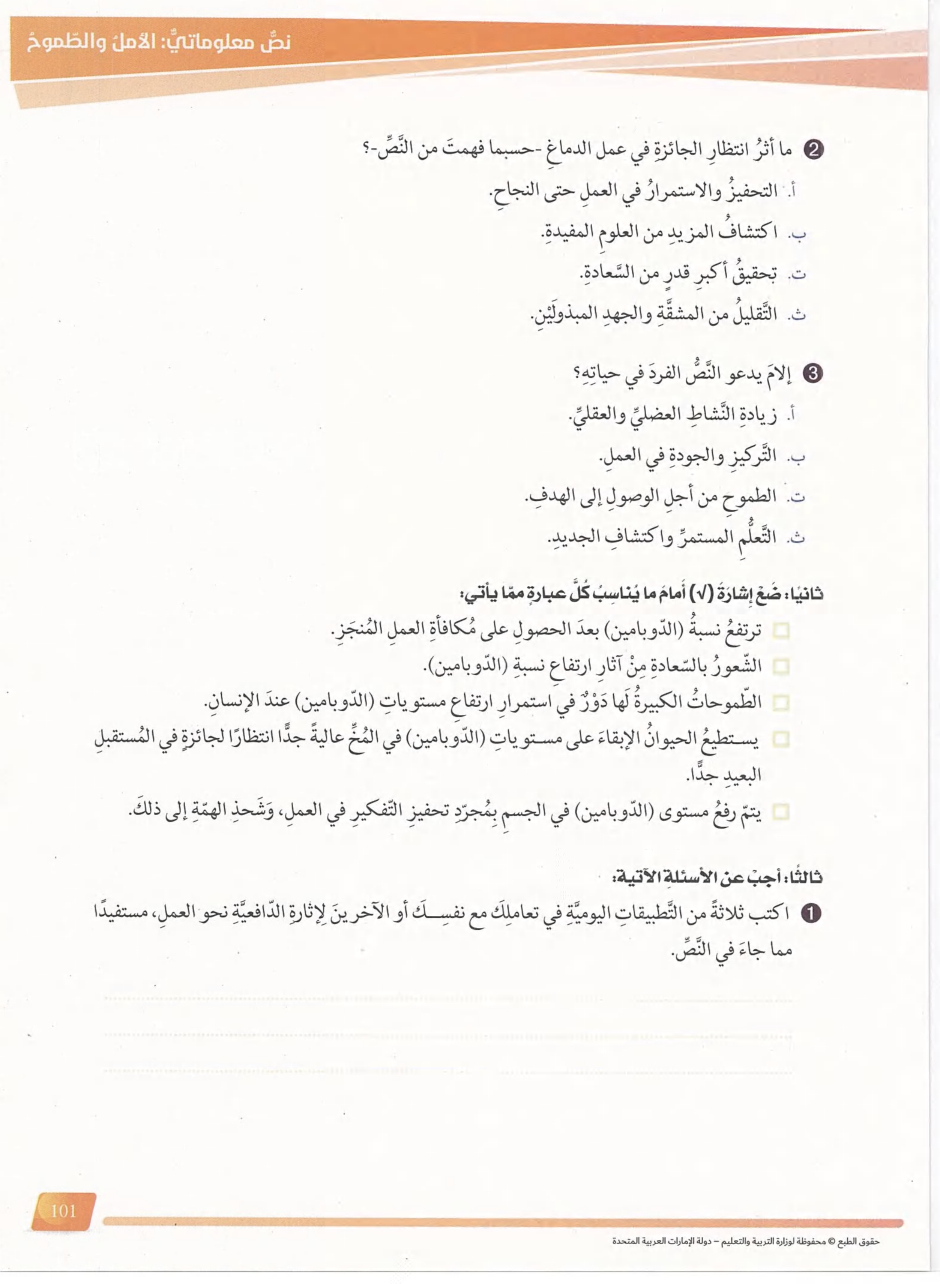 نصٌّ معلوماتيٌّ: الأملُ والطّموحُ
2 ما أثرُ انتظارِ الجائزةِ في عمل الدماغِ -حسبما فهمتَ من النَّصِّ-؟
أ. التحفيزُ والاستمرارُ في العملِ حتى النجاحِ.
ب. اكتشافُ المزيدِ من العلومِ المفيدةِ.
ت. تحقيقُ أكبرِ قدرٍ من السَّعادةِ.
ث. التَّقليلُ من المشقَّةِ والجهدِ المبذولَيْنِ.
3 إلامَ يدعو النَّصُّ الفردَ في حياتِهِ؟
أ. زيادةِ النَّشاطِ العضليِّ والعقليِّ.
ب. التَّركيزِ والجودةِ في العملِ.
ت. الطموحِ من أجلِ الوصولِ إلى الهدفِ.
ث. التَّعلُّمِ المستمرِّ واكتشافِ الجديدِ.
ثانيًا: ضَعْ إشارَةَ (√) أمامَ ما يُناسِبُ كُلَّ عبارةٍ ممّا يأتي:
ترتفعُ نسبةُ (الدّوبامين) بعدَ الحصولِ على مُكافأةِ العملِ المُنجَزِ.
الشّعورُ بالسّعادةِ مِنْ آثارِ ارتفاعِ نسبةِ (الدّوبامين).
الطّموحاتُ الكبيرةُ لَها دَوْرٌ في استمرارِ ارتفاعِ مستوياتِ (الدّوبامين) عندَ الإنسانِ.
يستطيعُ الحيوانُ الإبقاءَ على مستوياتِ (الدّوبامين) في المُخِّ عاليةً جدًّا انتظارًا لجائزةٍ في المُستقبلِ
البعيدِ جدًّا.
يتمّ رفعُ مستوى (الدّوبامين) في الجسمِ بِمُجرّدِ تحفيزِ التّفكيرِ في العملِ، وَشَحذِ الهمّةِ إلى ذلكَ.
ثالثًا: أجبْ عن الأسئلةِ الآتيةِ:
1 اكتب ثلاثةً من التَّطبيقاتِ اليوميَّةِ في تعاملِكَ مع نفسِكَ أو الآخرينَ لِإثارةِ الدّافعيَّةِ نحو العملِ، مستفيدًا
مما جاءَ في النَّصِّ.
101
حقوق الطبع © محفوظة لوزارة التربية والتعليم – دولة الإمارات العربية المتحدة